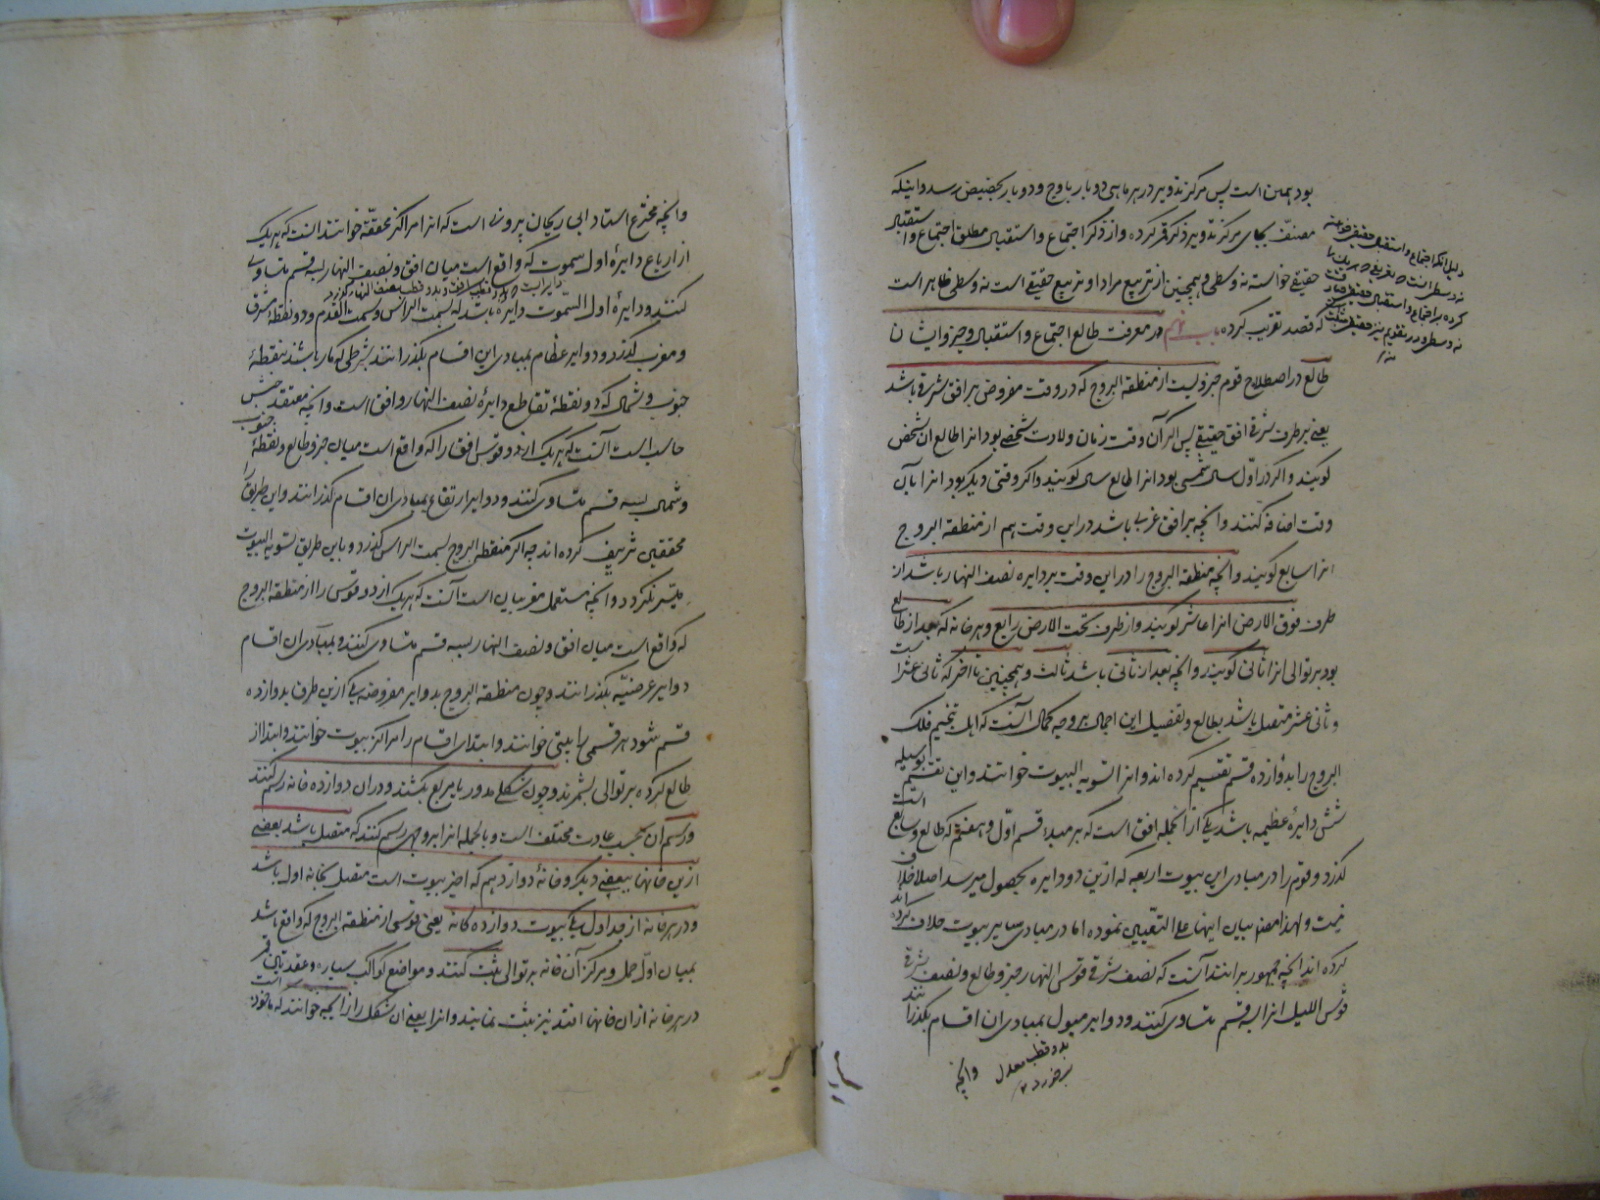 بود همین است پس مرکز تدویر در هر ماهی دو بار باوج و دو بار بحضیض رسد و اینکه
مصنف بجای مرکز تدویر ذکر قمر کرده و از ذکر اجتماع و استقبال مطلق اجتماع و استقبال
حقیقی خواسته نه وسطی و همچنین از تربیع مراد او تربیع حقیقی است نه وسطی ظاهر است
که قصد تقریب کرده باب در معرفت طالع اجتماع و استقبال و جزو ایشان
طالع در اصطلاح قوم جزویست از منطقة البروج که در وقت مفروض بر افق شرقی باشد
یعنی بر طرف شرقی افق حقیقی پس اگر آن وقت زمان ولادت شخصی بود انرا طالع ان شخص
کویند و اکر در اول سال شمسی بود انرا طالع سال کویند و اکر وقتی دیکر بود انرا بآن
وقت اضافه کنند و انچه بر افق غربی باشد در این وقت هم از منطقة البروج
انرا سابع کویند و انچه منطقة البروج را در این وقت بر دایره نصف النهار باشد از
طرف فوق الارض انرا عاشر کویند و از طرف تحت الارض رابع و هر خانه که بعد از طالع
بود بر توالی انرا ثانی کویند و انچه بعد از ثانی باشد ثالث و همچنین تا اخر که ثانی عشر است
و ثانی عشر متصل باشد بطالع و تفصیل این اجمال بر وجه کمال آنست که اهل تنجیم فلک
البروج را بدوازده قسم تقسیم کرده اند و انرا تسویة البیوت خوانند و این تقسیم بوسیله
شش دایرهٔ عظیمه باشد یکی از انجمله افق است که بر مبدء قسم اول و هفتم که طالع و سابع است
کذرد و قوم را در مبادی این بیوت اربعه که ازین دو دایره بحصول میرسد اصلا خلاف
نیست و لهذا مصنف بیان اینها علی التعیین نموده اما در مبادی سایر بیوت خلاف کرده اند
انچه جمهور بر انند آنست که نصف شرقی قوس النهار جزو طالع و نصف شرقی
قوس اللیل انرا بسه قسم متساوی کنند و دوایر میول بمبادی ان اقسام بکذرانند
بدو قطب معدل
و انچه
و انچه مخترع استاد ابی ریحان بیرونی است که انرا مراکز محققه خوانند آنست که هر یک
از ارباع دایرهٔ اول سموت که واقع است میان افق و نصف النهار بسه قسم متساوی
کنند و دایرهٔ اول السموت دایره باشد که بسمت الراس و سمت القدم و دو نقطهٔ مشرق
و مغرب کذرد و دوایر عظام بمبادی این اقسام بکذرانند بشرطی که مار باشند بنقطهٔ
جنوب و شمال که دو نقطهٔ تقاطع دایرهٔ نصف النهار و افق است و انچه معتقد حبش
حاسب است آنست که هر یک از دو قوس افق را که واقع است میان جزو طالع و نقطهٔ جنوب
و شمال بسه قسم متساوی کنند و دوایر ارتفاع بمبادی ان اقسام کذرانند و این طریق را
محققین تزییف کرده اند چه اکر منطقة البروج بسمت الراس کذرد و باین طریق تسویة البیوت
میسر نکردد و انچه مستعمل مغربیان است آنست که هر یک از دو قوسی را از منطقة البروج
که واقع است میان افق و نصف النهار بسه قسم متساوی کنند و بمبادی ان اقسام
دوایر عرضیه بکذرانند و چون منطقة البروج بدوایر مفروضه یکی ازین طرق بدوازده
قسم شود هر قسمی را بیتی خوانند و ابتدای اقسام را مراکز بیوت خوانند و ابتدا از
طالع کرده بر توالی بشمرند و چون شکلی مدور یا مربع بکشند و دران دوازده خانه رسم کنند
و رسم آن بحسب عادت مختلف است و بالجمله انرا بر وجهی رسم کنند که متصل باشد بعضی
ازین خانها ببعضی دیکر و خانهٔ دوازدهم که اخر بیوت است متصل بخانه اول باشد
و در هر خانه از جداول یکی بیوت دوازده کانه یعنی قوسی از منطقة البروج که واقع باشد
بمیان اول حمل و مرکز آن خانه بر توالی ثبت کنند و مواضع کواکب سیاره و عقدتین قمر
در هر خانه از ان خانها افتد نیز ثبت نمایند و انرا یعنی ان شکل را زایجه خوانند